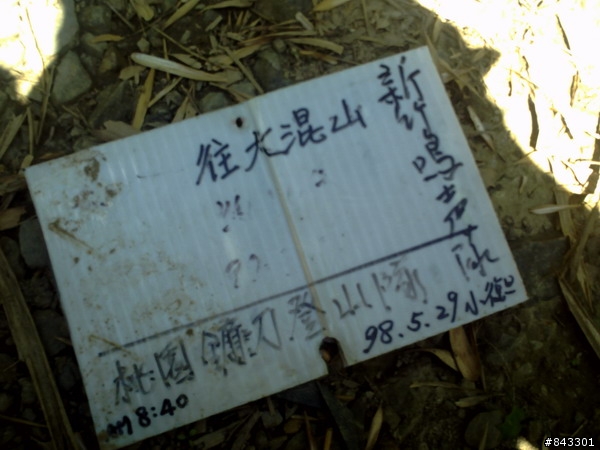 往大混山
新竹鳴
桃園鐮刀登山隊
98.5.29小
AM 8:40
#843301